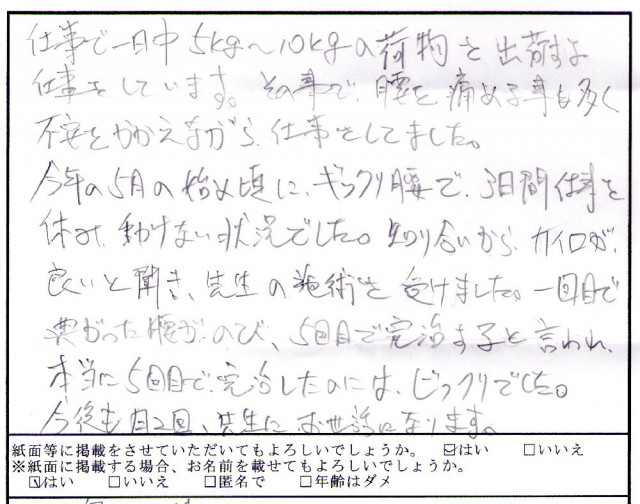 仕事で一日中5kg～10kgの荷物を出荷する
仕事をしています。その事で、腰を痛める事も多く
不安をかかえながら、仕事をしてました。
今年の5月の始め頃に、ギックリ腰で、3日間仕事を
休み、動けない状況でした。知り合いから、カイロが、
良いと聞き、先生の施術を受けました。一回目で
曲がった腰が、のび、5回目で完治すると言われ、
本当に5回目で、完治したのには、ビックリでした。
今後も月2回、先生にお世話になります。
紙面等に掲載をさせていただいてもよろしいでしょうか。 ☑はい □いいえ
※紙面に掲載する場合、お名前を載せてもよろしいでしょうか。
☑はい □いいえ □匿名で □年齢はダメ